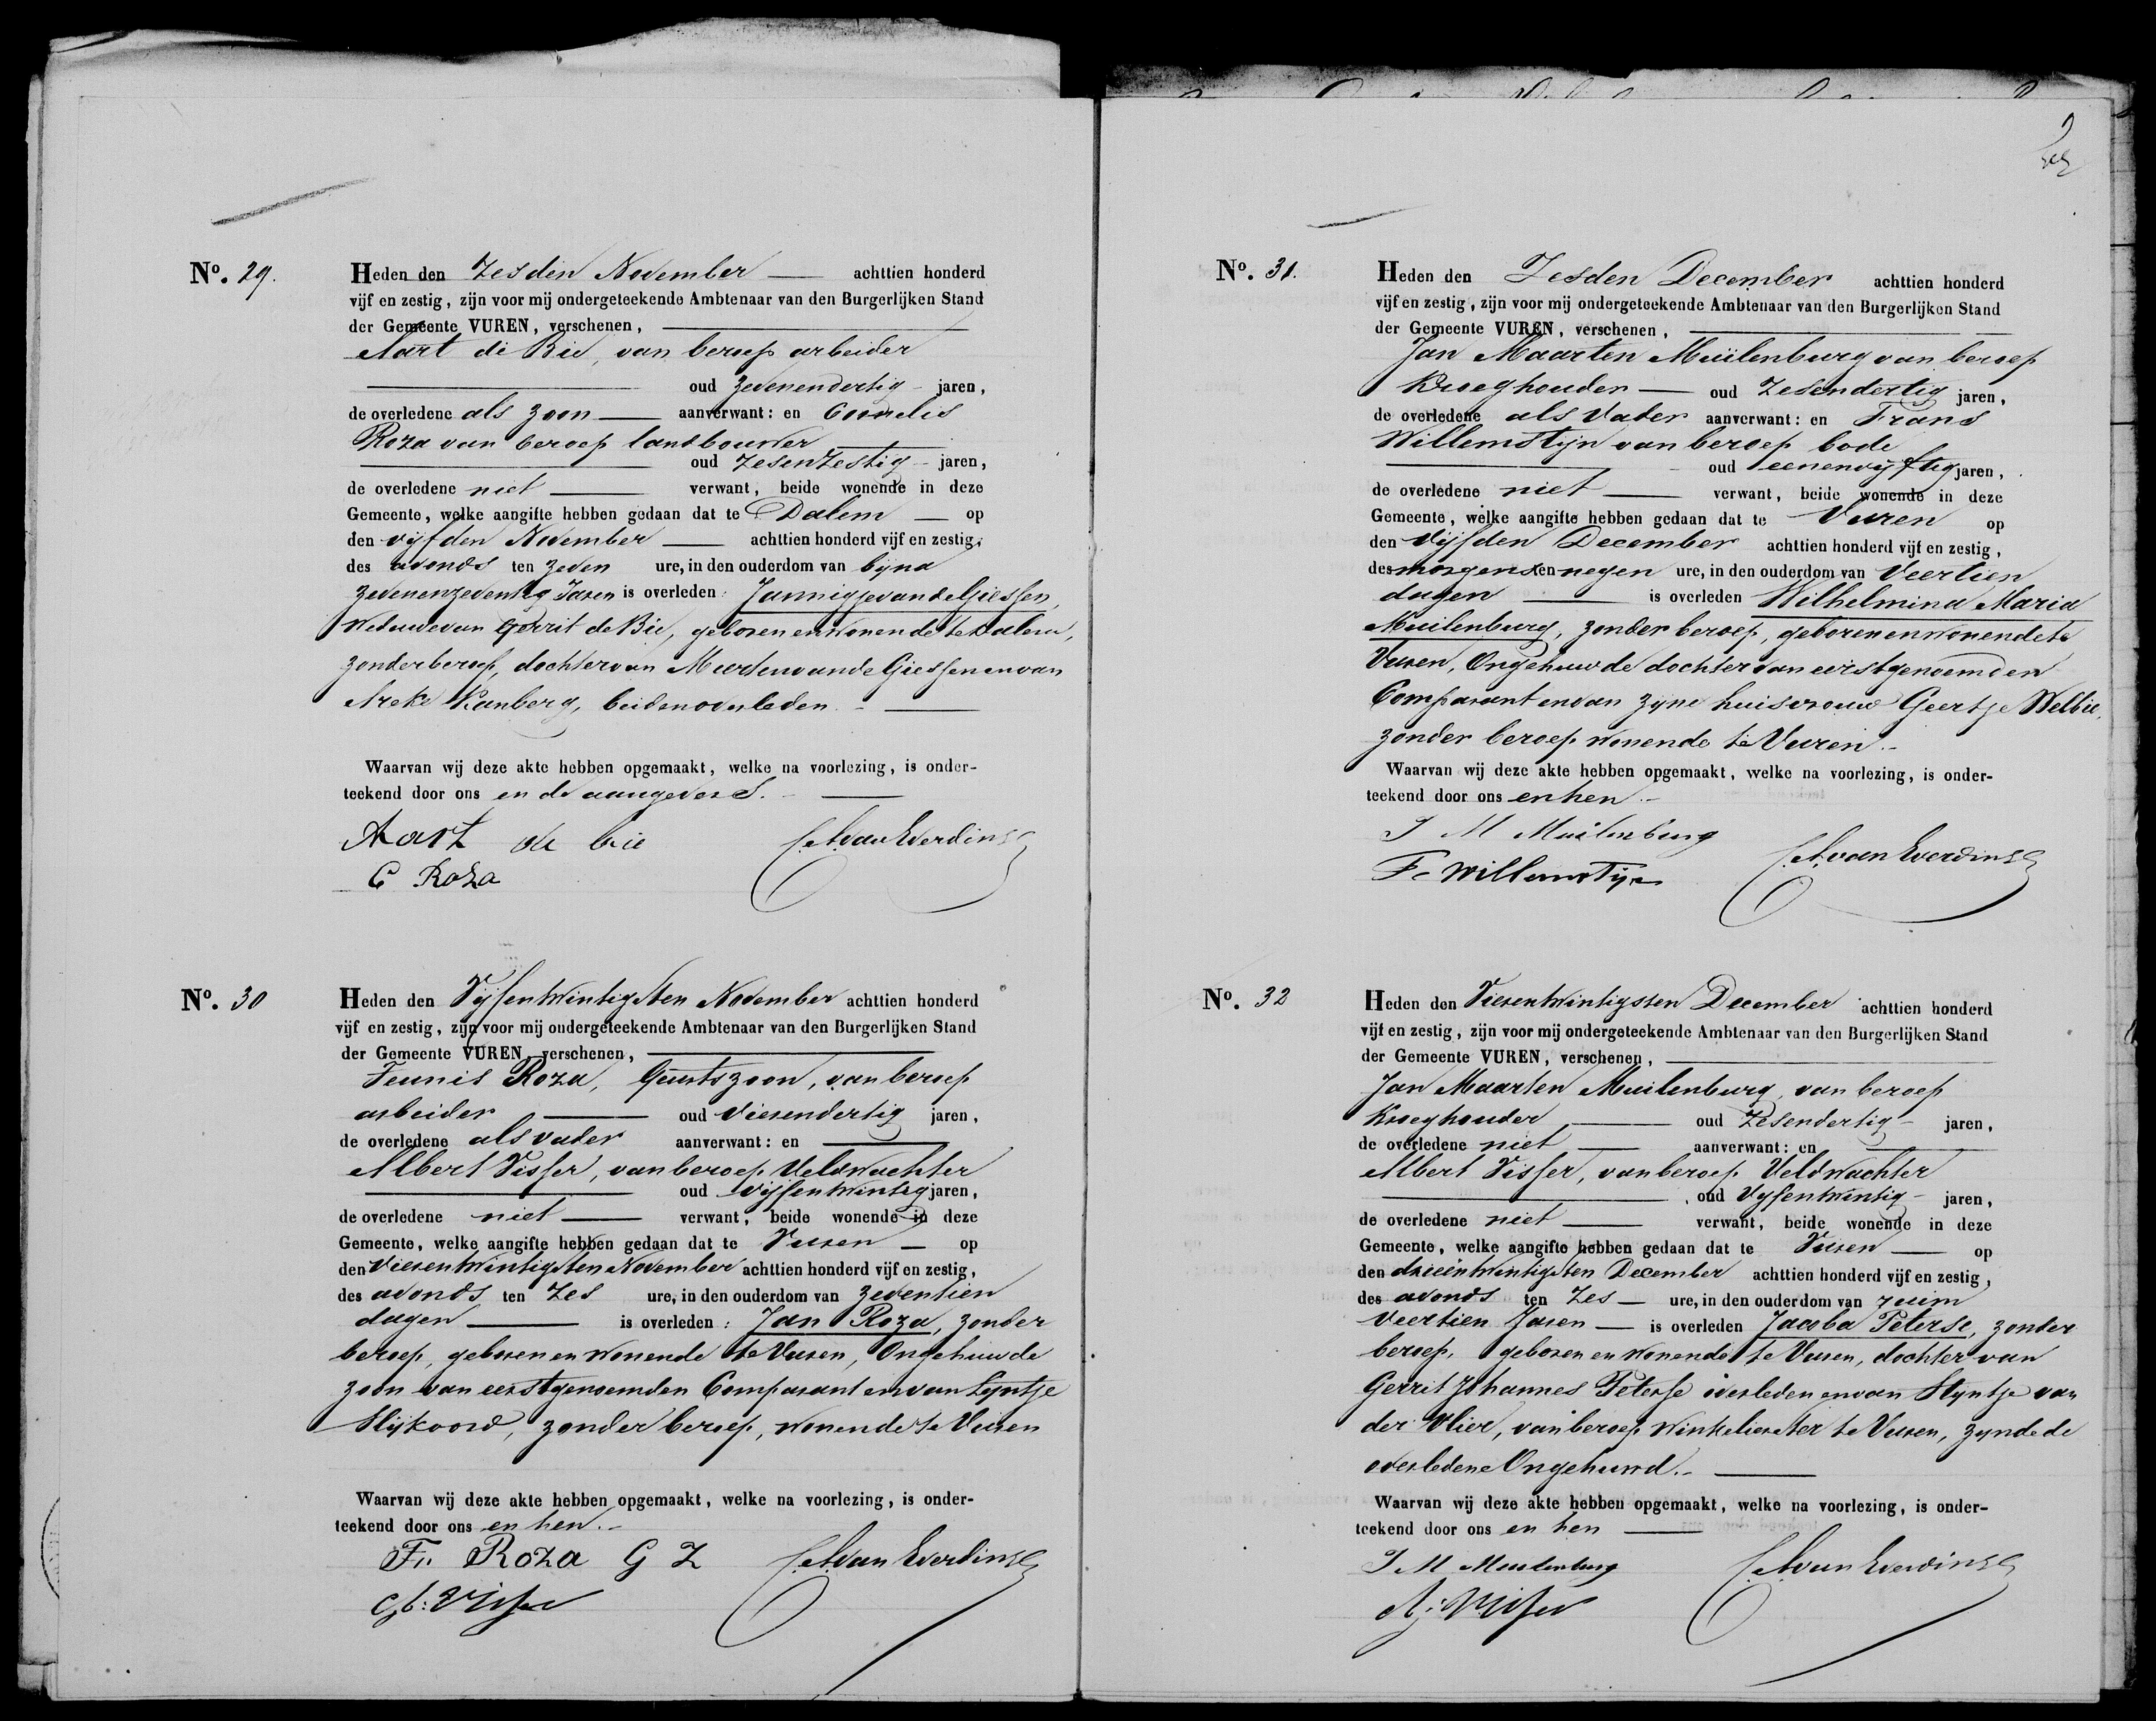 No. 29.
Heden den Zesden November — achttien honderd
vijf en zestig, zijn voor mij ondergeteekende Ambtenaar van den Burgerlijken Stand
der Gemeente VUREN, verschenen,
Aart de Bie, van beroep arbeider
oud zevenendertig jaren,
de overledene als zoon — aanverwant: en Cornelis
Roza van beroep landbouwer
oud zesenzestig jaren,
de overledene niet — verwant, beide wonende in deze
Gemeente, welke aangifte hebben gedaan dat te Dalem — op
den vijfden November — achttien honderd vijf en zestig,
des avonds ten zeven ure, in den ouderdom van bijna
zevenenzeventig Jaren is overleden: Jannigje van de Giessen,
Weduwe van Gerrit de Bie, geboren en wonende te Dalem,
zonder beroep, dochter van Meerten van de Giessen en van
Areke Kanberg, beiden overleden. —
Waarvan wij deze akte hebben opgemaakt, welke na voorlezing, is onder-
teekend door ons en de aangevers. —
Aart de bie
C.A. van Everdingen
C Roza
No. 30
Heden den Vijfentwintigsten November achttien honderd
vijf en zestig, zijn voor mij ondergeteekende Ambtenaar van den Burgerlijken Stand
der Gemeente VUREN, verschenen,
Teunis Roza, Geurtszoon, van beroep
arbeider — oud vierendertig jaren,
de overledene als vader aanverwant: en
Albert Visser, van beroep Veldwachter
oud vijfentwintig jaren,
de overledene niet — verwant, beide wonende in deze
Gemeente, welke aangifte hebben gedaan dat te Vuren — op
den Vierentwintigsten November achttien honderd vijf en zestig,
des avonds ten Zes ure, in den ouderdom van zeventien
dagen — is overleden: Jan Roza, zonder
beroep, geboren en wonende te Vuren, Ongehuwde
zoon van eerstgenoemden Comparant en van Lijntje
Slijkoord, zonder beroep, wonende te Vuren
Waarvan wij deze akte hebben opgemaakt, welke na voorlezing, is onder-
teekend door ons en hen. -
T. Roza G Z
C.A. van Everdingen
Ab: Visser
No. 31.
Heden den Zesden December achttien honderd
vijf en zestig, zijn voor mij ondergeteekende Ambtenaar van den Burgerlijken Stand
der Gemeente VUREN, verschenen,
Jan Maarten Muilenburg van beroep
Kroeghouder — oud Zesendertig jaren,
de overledene als Vader aanverwant: en Frans
Willemstijn van beroep bode
oud eenenvijftig jaren,
de overledene niet — verwant, beide wonende in deze
Gemeente, welke aangifte hebben gedaan dat te Vuren op
den Vijfden December achttien honderd vijf en zestig,
des morgens ten negen ure, in den ouderdom van Veertien
dagen — is overleden Wilhelmina Maria
Muilenburg, zonder beroep, geboren en wonende te
Vuren, Ongehuwde dochter van eerstgenoemden
Comparant en van zijne huisvrouw Geertje Welbie,
zonder beroep wonende te Vuren. -
Waarvan wij deze akte hebben opgemaakt, welke na voorlezing, is onder-
teekend door ons en hen. -
J M Muilenburg
C.A. van Everdingen
F. Willemstijn
No. 32
Heden den Vierentwintigsten December achttien honderd
vijf en zestig, zijn voor mij ondergeteekende Ambtenaar van den Burgerlijken Stand
der Gemeente VUREN, verschenen,
Jan Maarten Muilenburg, van beroep
Kroeghouder — oud Zesendertig jaren,
de overledene niet — aanverwant: en
Albert Visser, van beroep Veldwachter
oud Vijfentwintig jaren,
de overledene niet — verwant, beide wonende in deze
Gemeente, welke aangifte hebben gedaan dat te Vuren — op
den drieëntwintigsten December achttien honderd vijf en zestig,
des avonds ten Zes — ure, in den ouderdom van ruim
Veertien Jaren — is overleden Jacoba Peterse, zonder
beroep, geboren en wonende te Vuren, dochter van
Gerrit Johannes Peterse overleden en van Stijntje van
der Vlier, van beroep Winkelierster te Vuren, zijnde de
overledene Ongehuwd. —
Waarvan wij deze akte hebben opgemaakt, welke na voorlezing, is onder-
teekend door ons en hen —
J M Muilenburg
C.A. van Everdingen
A: Visser